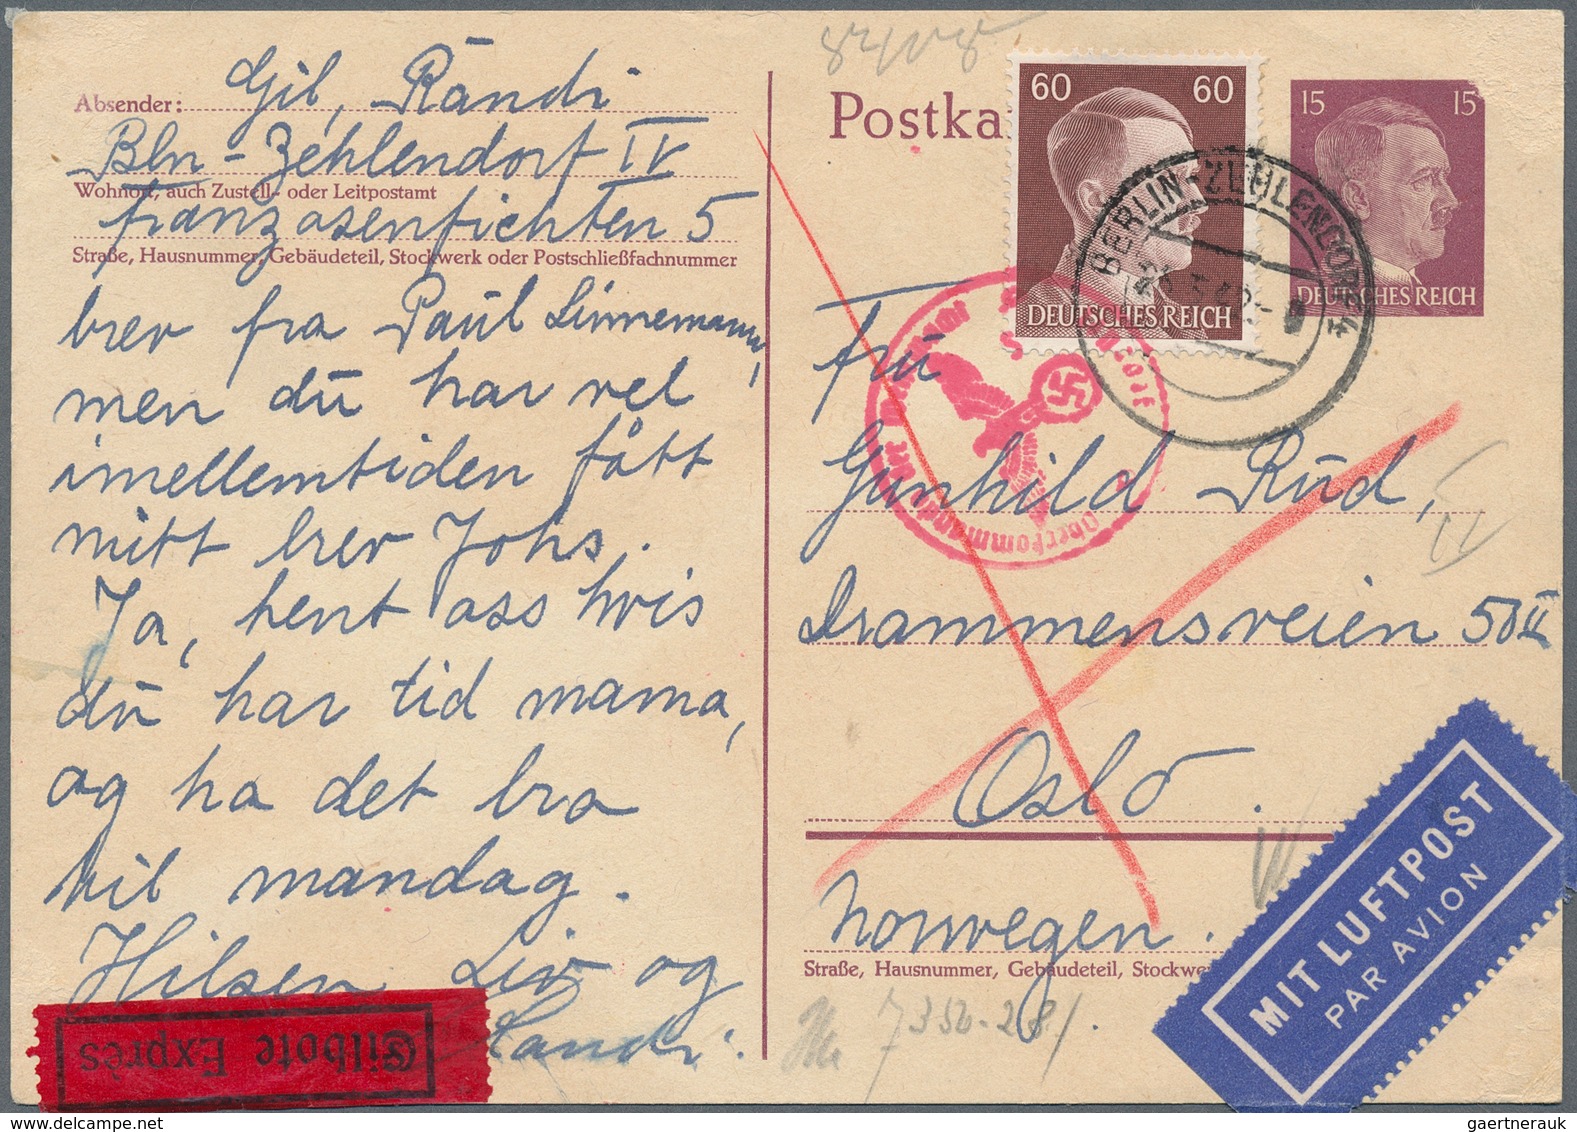 Absender: Gil, Randi
Bln-Zehlendorf IV
Wohnort, auch Zustell- oder Leitpostamt
Franzosenfichten 5
Straße, Hausnummer, Gebäudeteil, Stockwerk oder Postschließfachnummer
brev fra Paul Linnemann,
men du har vel
imellemtiden fått
mitt brev Johs.
Ja, hent oss hvis
du har tid mama,
og ha det bra
til mandag.
Hilsen Liv og
Randi.
Eilbote Exprès
Postka
60 60
DEUTSCHES REICH
15 15
DEUTSCHES REICH
BERLIN-ZEHLENDORF 4
Oberkommando der Wehrmacht
Fru
Gunhild Rud,
Drammensveien 50 II
Oslo.
Norwegen.
Straße, Hausnummer, Gebäudeteil, Stockwe
MIT LUFTPOST
PAR AVION
gaertnerauk